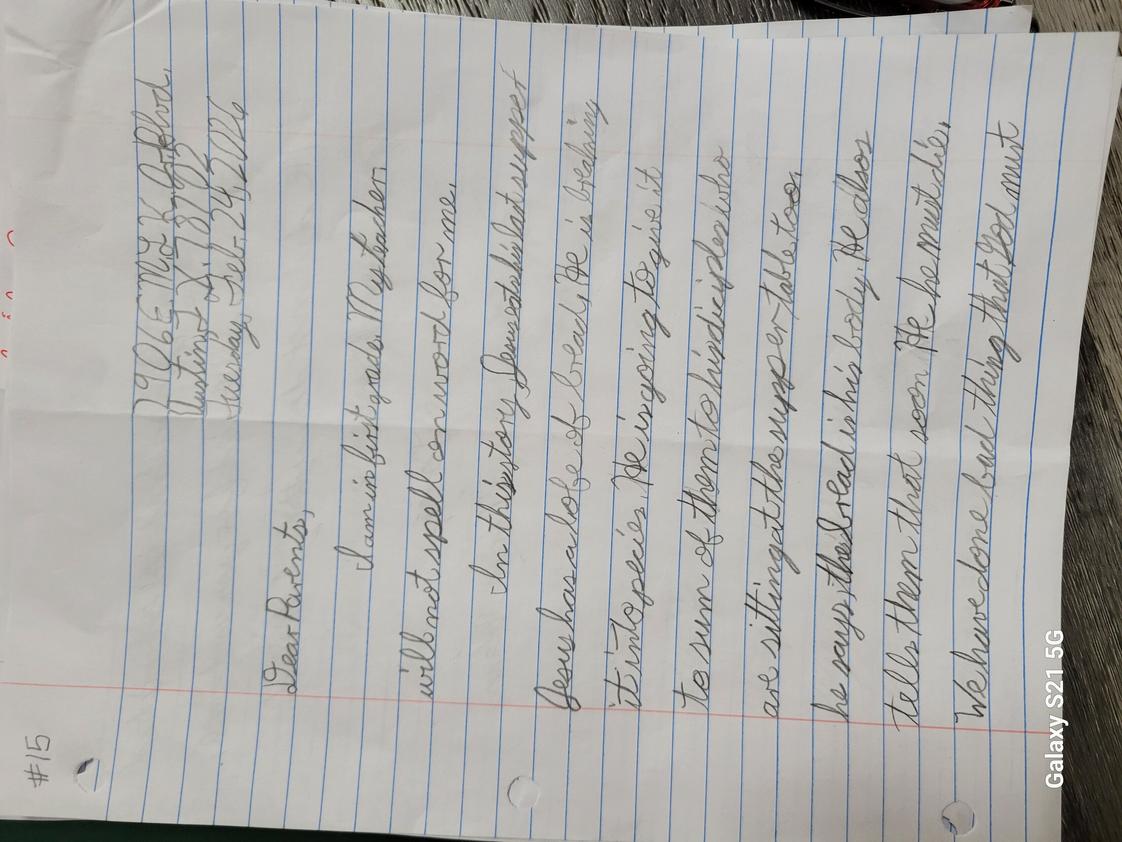 #15
1906 E. MLK Jr. Blvd.
Austin, TX 78702
Tuesday, Feb. 24, 2026
Dear Parents,
I am in first grade. My teacher,
will not spell on word for me.
In this story, Jesus eats his last supper
Jesus has a lofe of bread. He is breaking
it into pecies. He is going to give it
to sum of them to his diciples who
are sitting at the supper table too.
he says, the bread is his body. He also
tells them that soon He he must die.
We have done bad thing that God must
Galaxy S21 5G